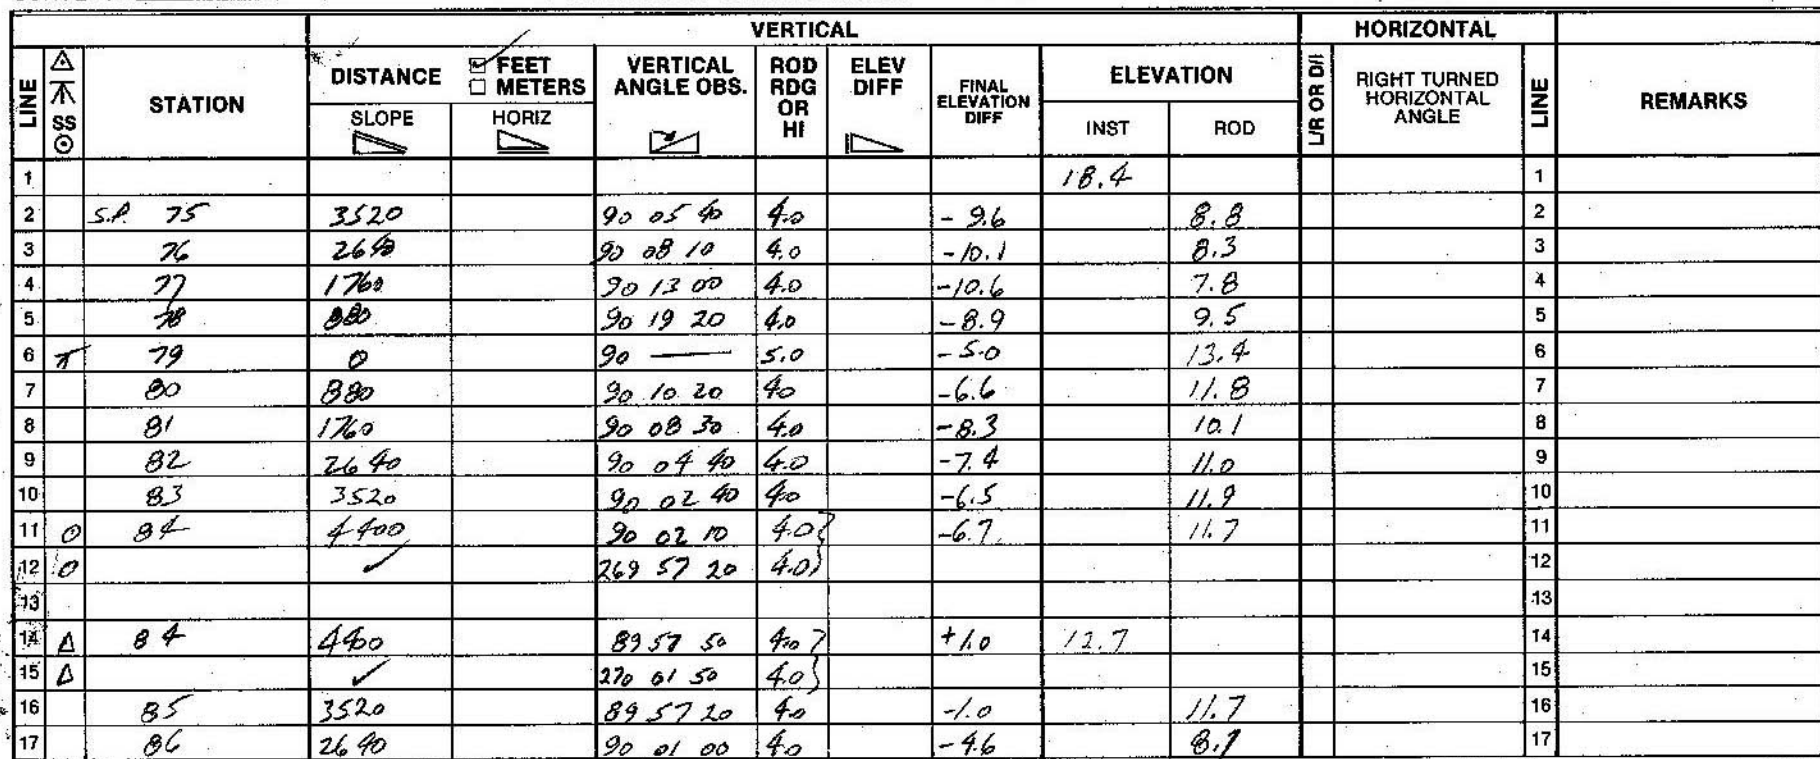 VERTICAL HORIZONTAL
LINE SS STATION DISTANCE FEET METERS VERTICAL ANGLE OBS. ROD RDG OR HI ELEV DIFF FINAL ELEVATION DIFF ELEVATION L/R OR D/I RIGHT TURNED HORIZONTAL ANGLE LINE REMARKS
SLOPE HORIZ INST ROD
1 18.4 1
2 S.P. 75 3520 90 05 40 4.0 - 9.6 8.8 2
3 76 2640 90 08 10 4.0 -10.1 8.3 3
4 77 1760 90 13 00 4.0 -10.6 7.8 4
5 78 880 90 19 20 4.0 -8.9 9.5 5
6 79 0 90 — 5.0 -5.0 13.4 6
7 80 880 90 10 20 40 -6.6 11.8 7
8 81 1760 90 08 30 4.0 -8.3 10.1 8
9 82 2640 90 04 40 4.0 -7.4 11.0 9
10 83 3520 90 02 40 4.0 -6.5 11.9 10
11 84 4400 90 02 10 4.0 -6.7 11.7 11
12 269 57 20 4.0 12
13 13
14 Δ 84 4400 89 57 50 4.0 +1.0 12.7 14
15 Δ 270 01 50 4.0 15
16 85 3520 89 57 20 4.0 -1.0 11.7 16
17 86 2640 90 01 00 4.0 -4.6 8.1 17